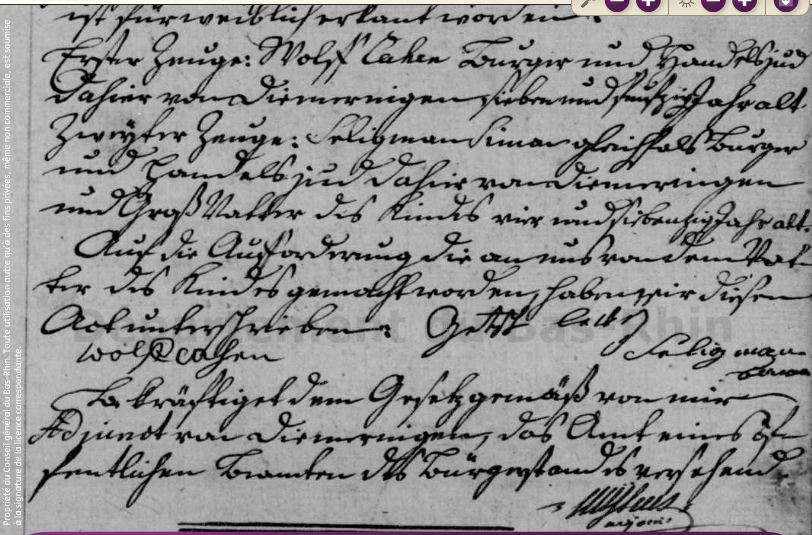 ist für weiblich erkant worden.
Erster Zeuge: Wolff Cahen Burger und Handelsjud
dahier von Diemeringen, sieben und funfzig Jahr alt
Zweyter Zeuge: Seligman Simon gleichfals Burger
und Handelsjud dahier von Diemeringen
und Groß Vatter des Kindes vier und siebenzig Jahr alt.
Auf die Aufforderung die an uns von dem Vat-
ter des Kindes gemacht worden, haben wir diesen
Act unterschrieben:
wolf cahen Seligman
Bekräftiget dem Gesetz gemäß von mir
Adjunct von Diemeringen, das Amt eines öf-
fentlichen Beamten des Bürgerstandes versehend.
adjoint
Département du Bas-Rhin
Propriété du Conseil général du Bas-Rhin. Toute utilisation autre qu'à des fins privées, même non commerciale, est soumise
à la signature de la licence correspondante.